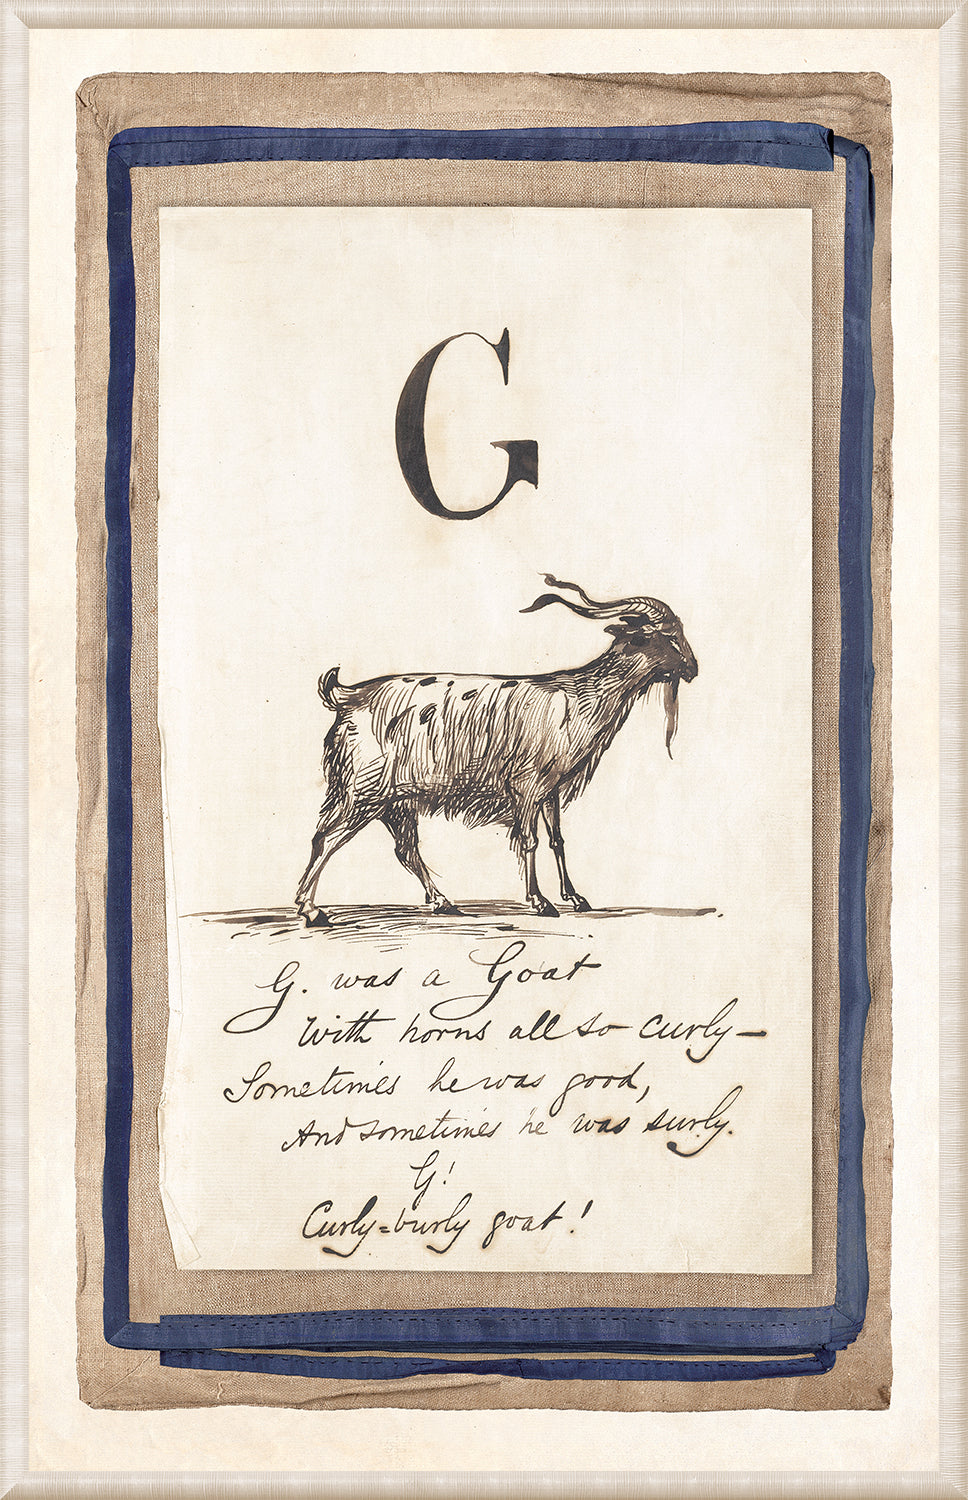 G
G. was a Goat
With horns all so curly—
Sometimes he was good,
And sometimes he was surly.
G!
Curly=burly goat!